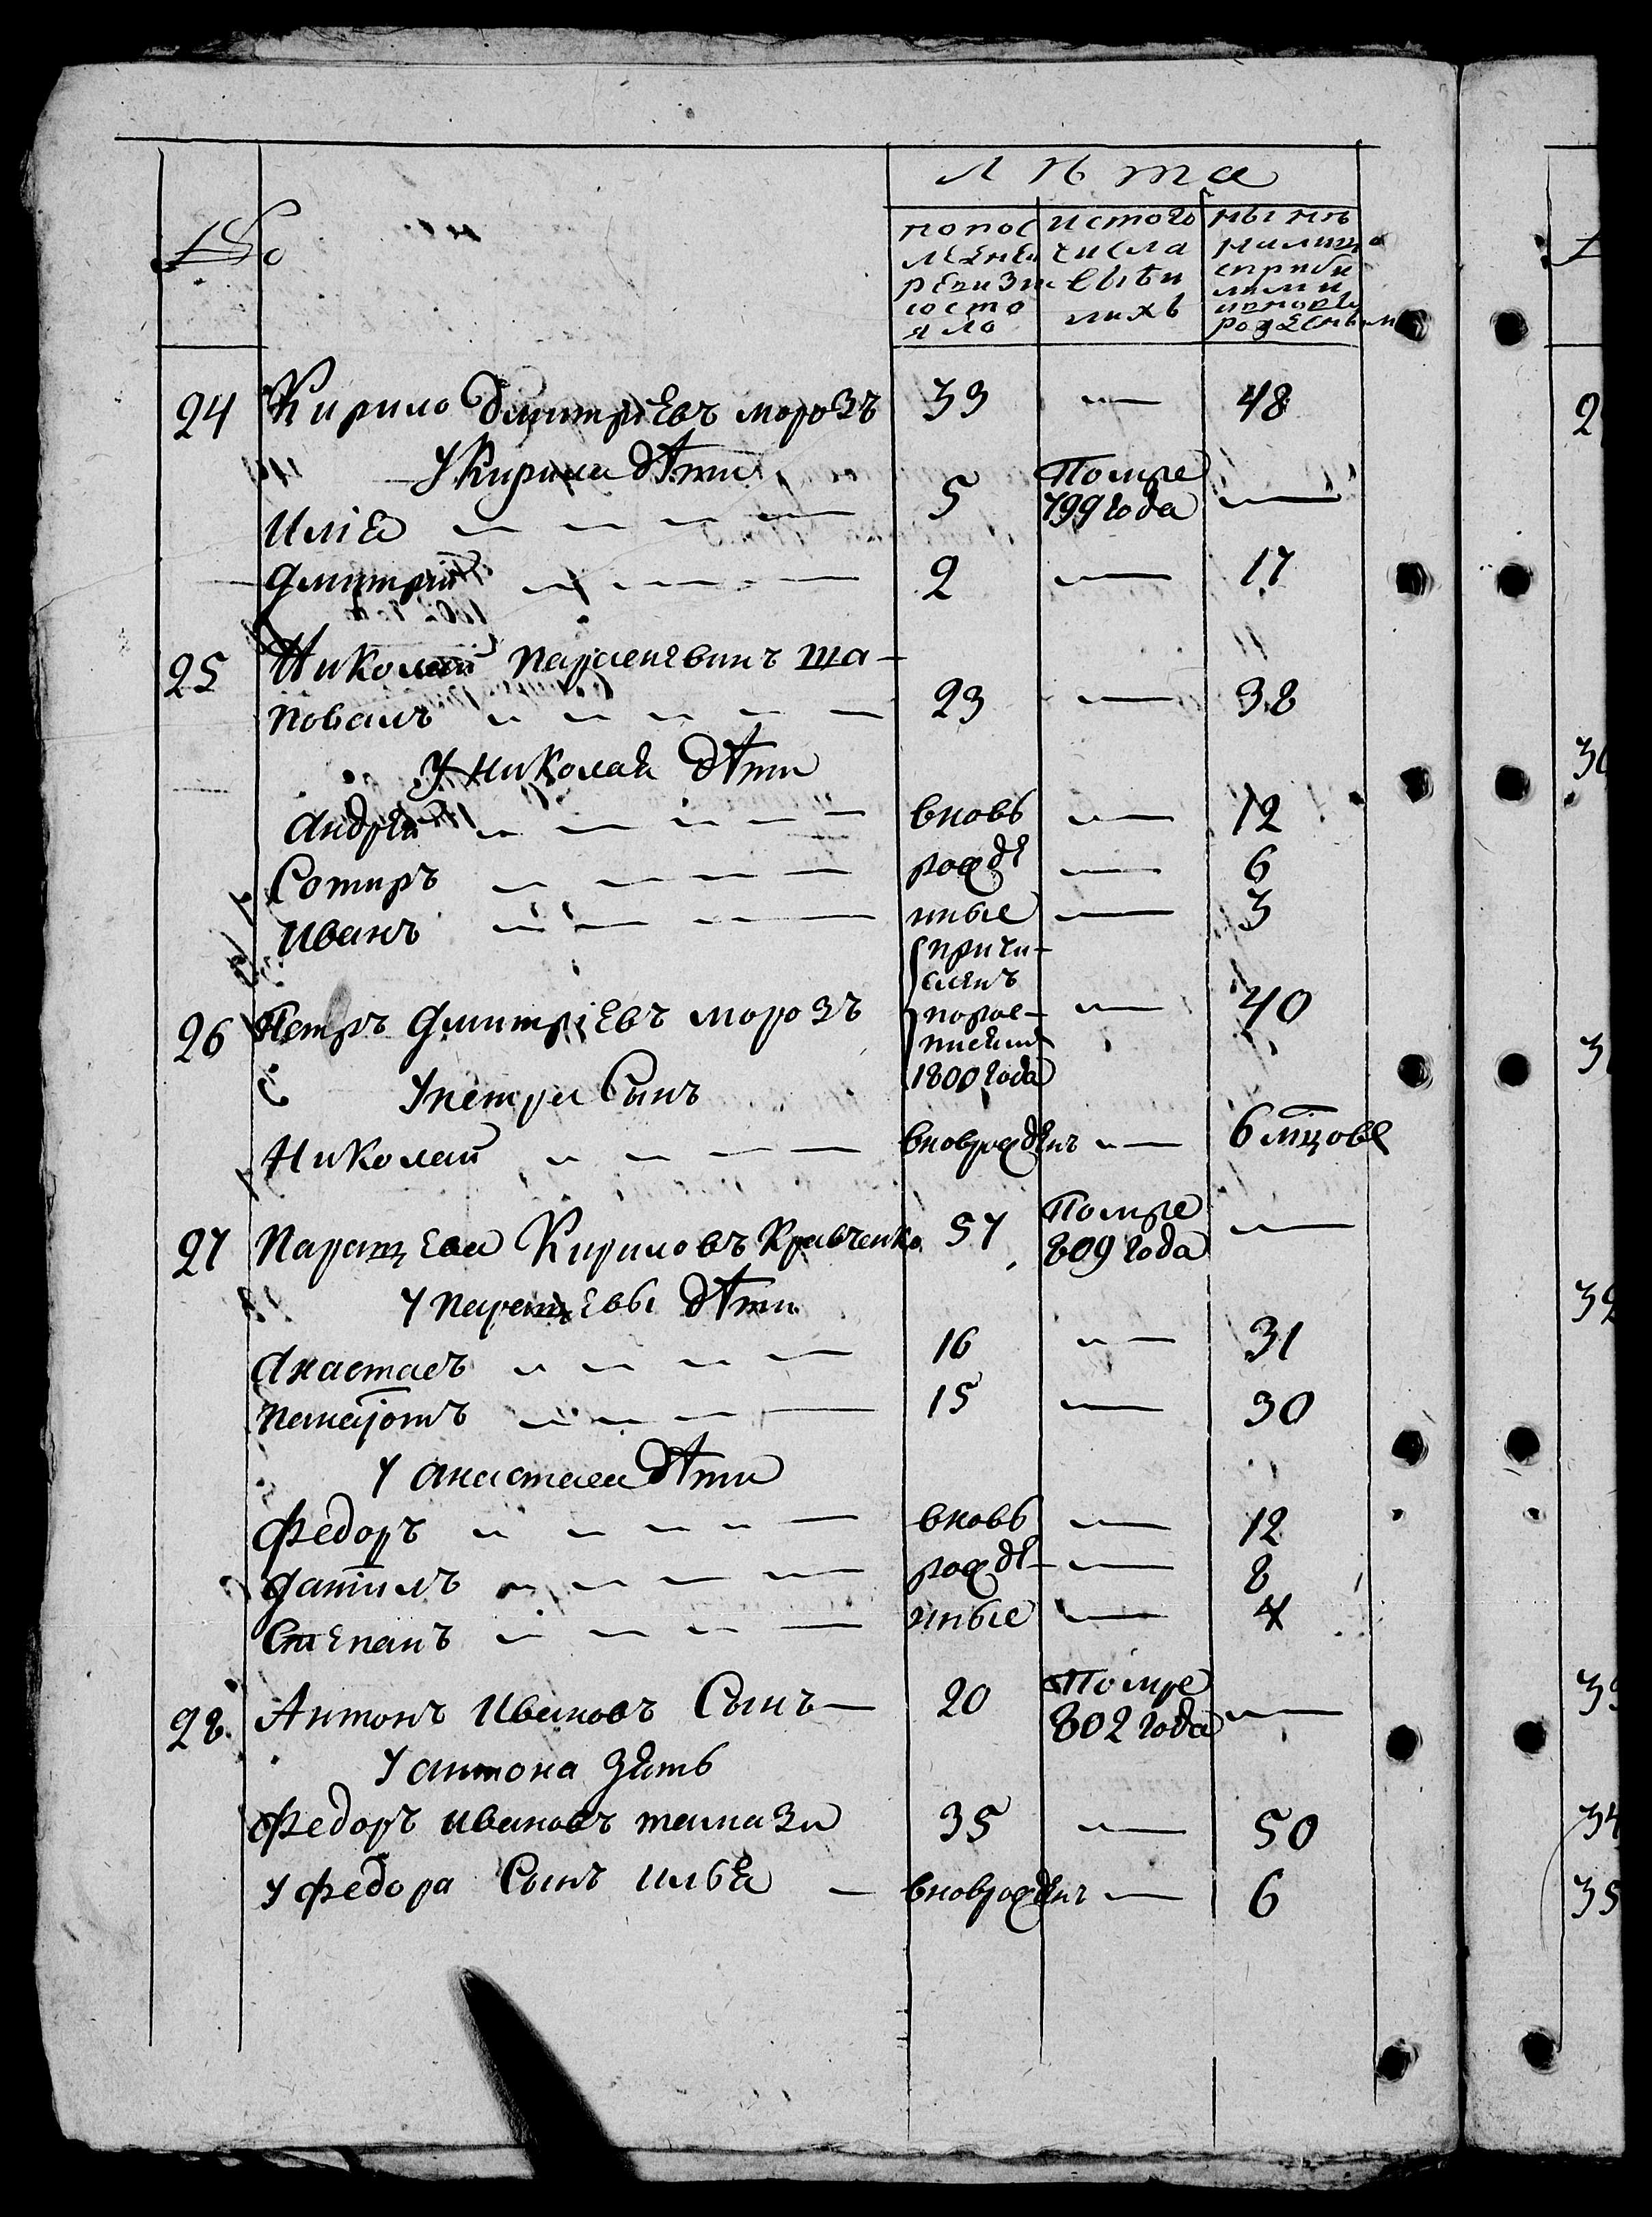 Лѣта
№
попос лѣдней ревизии состо яло
истого числа выбы лихъ
нынѣ налицо сприбы лыми ивновь рожденными
24 Кирило Дмитріевъ морозъ 33 — 48
У Кирила дѣти
Иліа — 5 Помре 799 года —
Дмитрій — 2 — 17
25 Николай
повалъ — 23 — 38
У Николая дѣти
Андрей — вновь — 12
Сотиръ — рожде — 6
Иванъ — нные — 3
26 Петръ Дмитріевъ морозъ причи- сленъ 1800 года — 40
У петра Сынъ
Николай — вноврожденъ — 6 мцовъ
27 Паращева Кириловъ Кравченко 57 Помре 809 года —
У паращевы дѣти
Анастасъ — 16 — 31
панаіотъ — 15 — 30
У анастаса дѣти
Федоръ — вновь — 12
— рожде- — 8
Степанъ — нные — 4
28 Антонъ Ивановъ Сынъ — 20 Помре 802 года —
У антона зять
Федоръ ивановъ 35 — 50
У федора Сынъ илья — вноврожденъ — 6
30
31
32
33
34
35